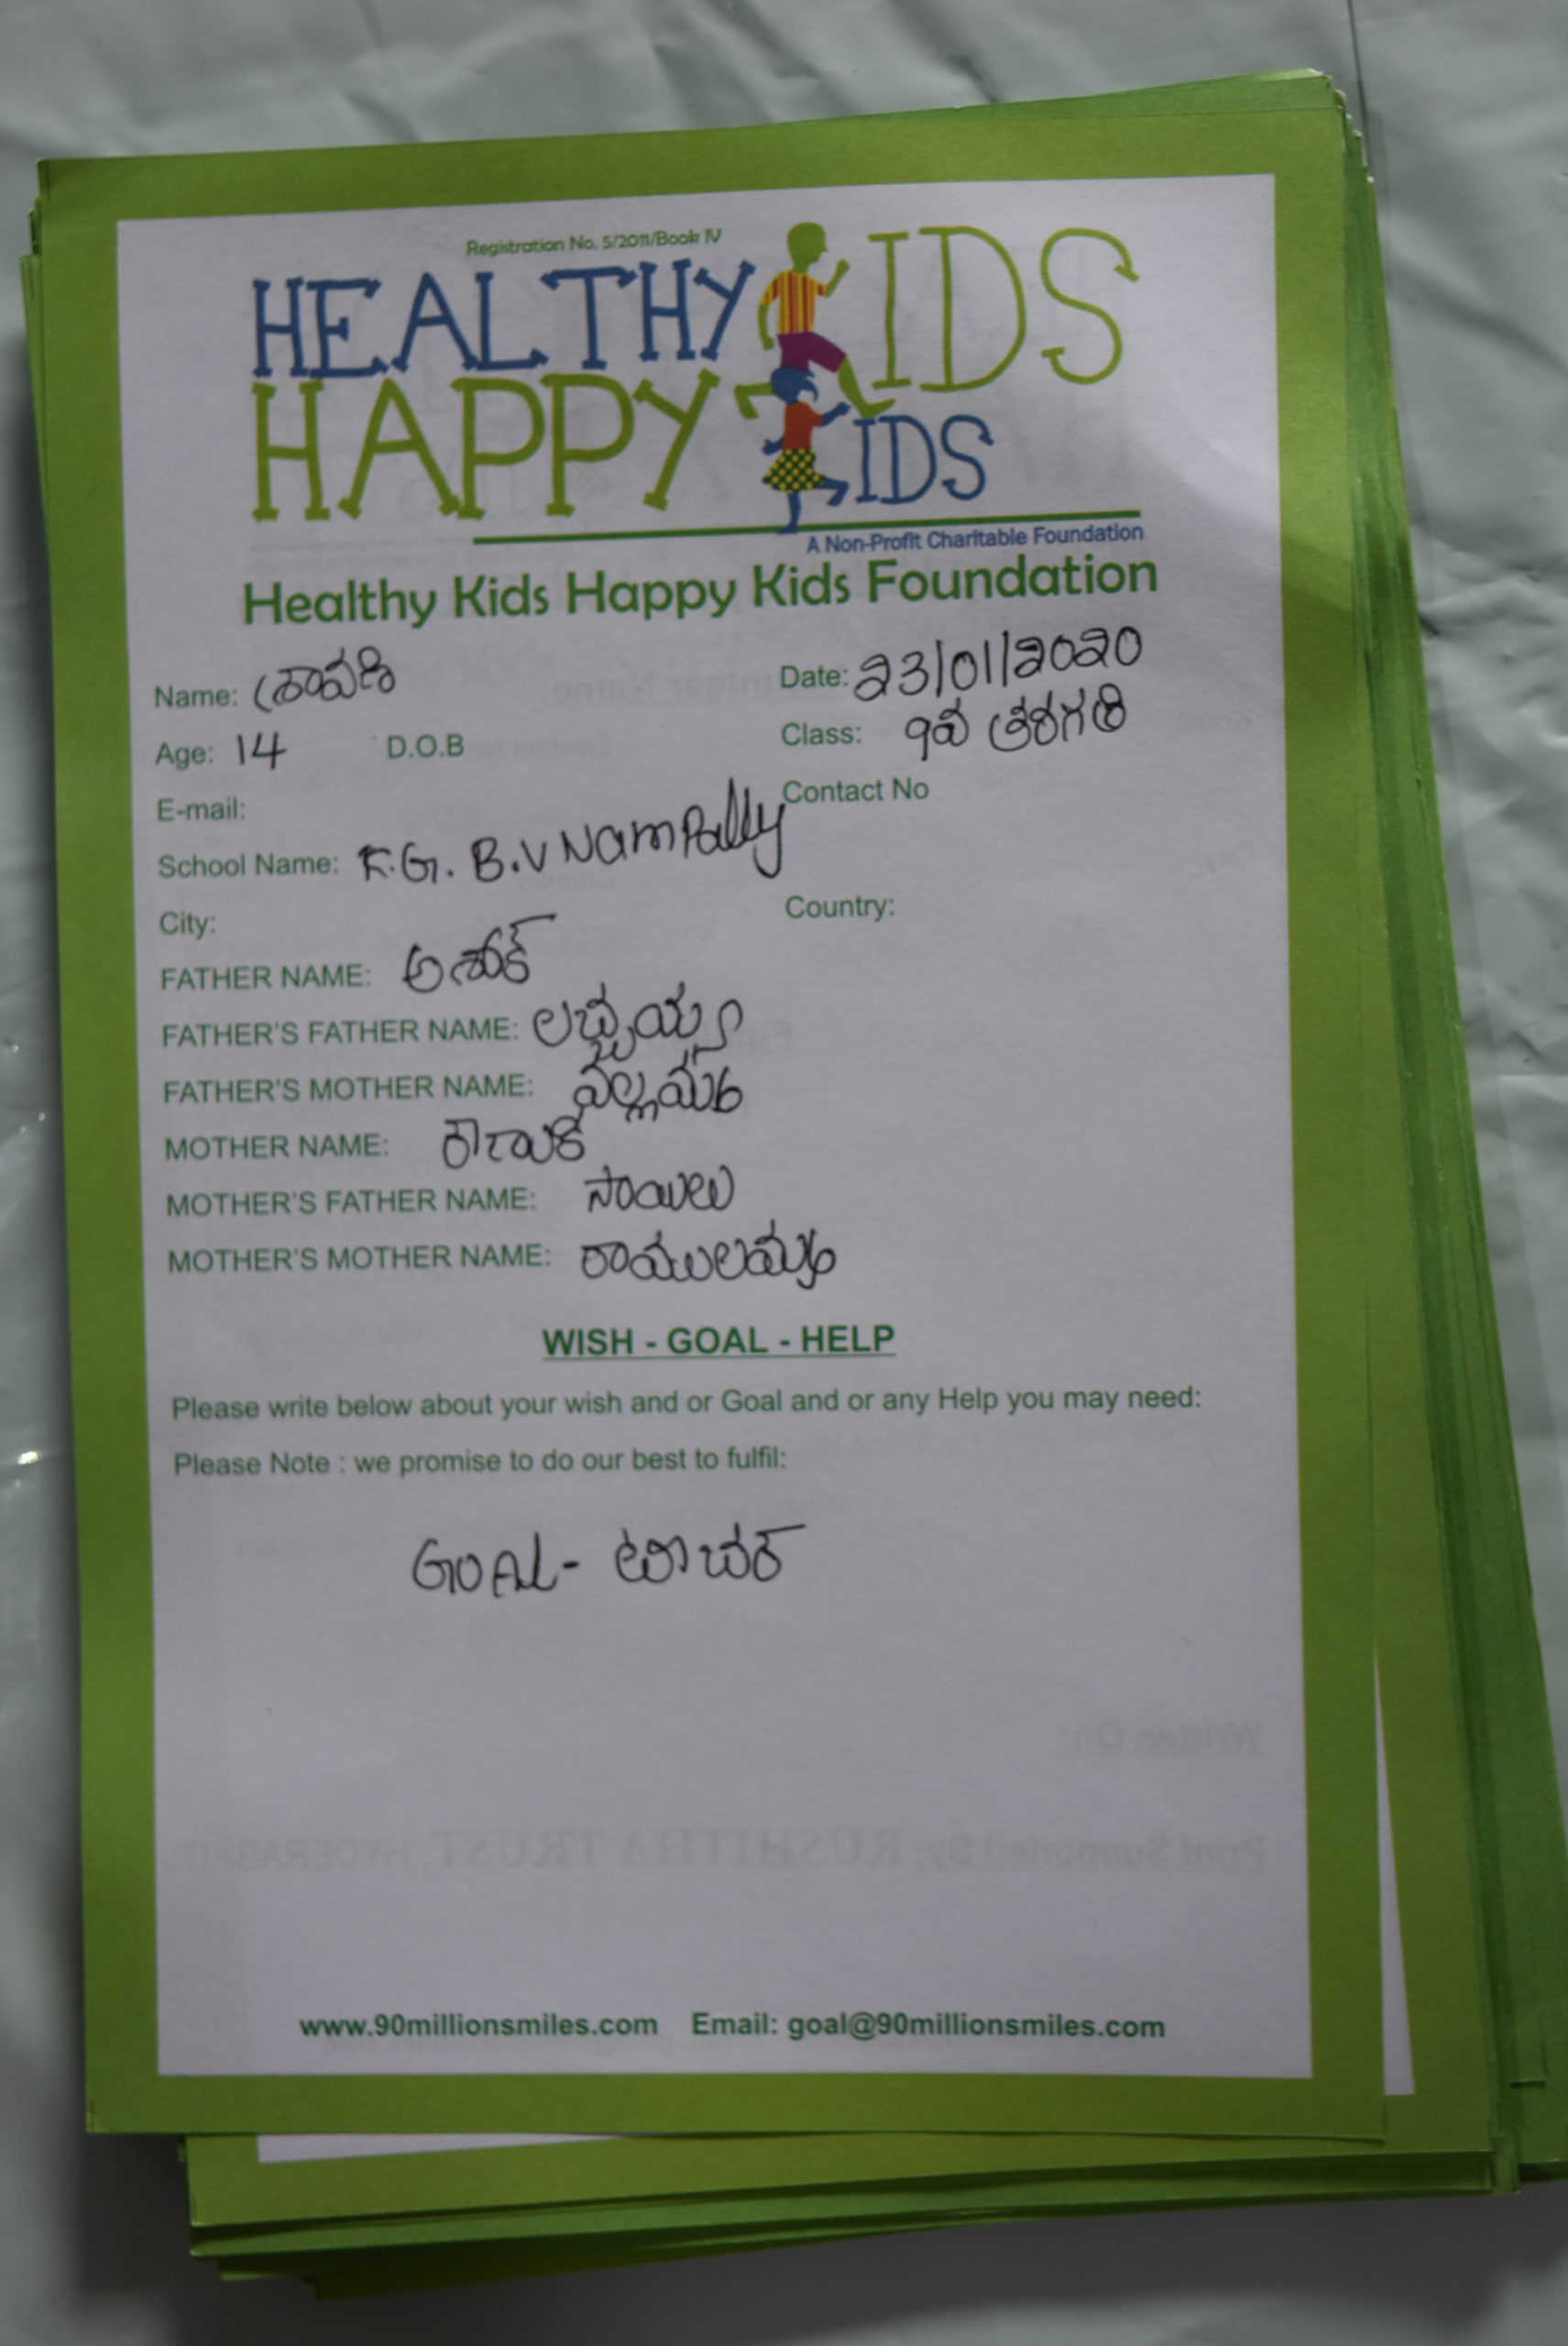 Registration No. 5/2011/Book IV
HEALTHY KIDS
HAPPY KIDS
A Non-Profit Charitable Foundation
Healthy Kids Happy Kids Foundation
Name: శ్రావణి Date: 23/01/2020
Age: 14 D.O.B Class: 9వ తరగతి
E-mail: Contact No
School Name: K.G.B.V Nampally
City: Country:
FATHER NAME: అశోక్
FATHER'S FATHER NAME: లచ్చయ్య
FATHER'S MOTHER NAME: ఎల్లమ్మ
MOTHER NAME:
MOTHER'S FATHER NAME: సాయిలు
MOTHER'S MOTHER NAME: రాములమ్మ
WISH - GOAL - HELP
Please write below about your wish and or Goal and or any Help you may need:
Please Note : we promise to do our best to fulfil:
GOAL- టీచర్
www.90millionsmiles.com Email: goal@90millionsmiles.com